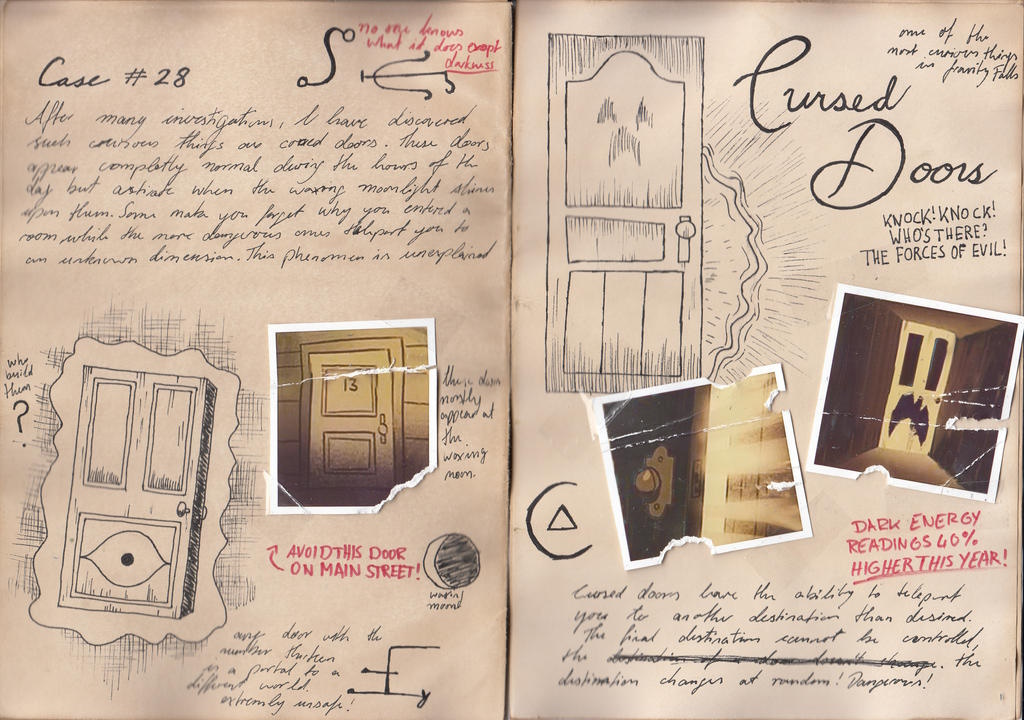 no one knows
what it does exept
darkness
Case # 28
After many investigations, I have discovered
such couvious things are cored doors. These doors
appear completly normal dwing the hours of the
day but activate when the waxing moonlight shines
upon them. Some make you forget why you entered a
room while the more dangerous ones teleport you to
an unknown dimension. This phenomen is unexplained
who
build
them
?
13
these doors
mostly
appear at
the
waxing
moon.
AVOID THIS DOOR
ON MAIN STREET!
waxing
moon
any door with the
number thirteen
is a portal to a
different world.
extremly unsafe!
one of the
most curious things
in Gravity Falls
Cursed
Doors
KNOCK! KNOCK!
WHO'S THERE?
THE FORCES OF EVIL!
DARK ENERGY
READINGS 40%
HIGHER THIS YEAR!
Cursed doors have the ability to teleport
you to another destination than desired.
The final destination cannot be controlled,
the destination of a door doesn't change. the
destination changes at random! Dangerous!